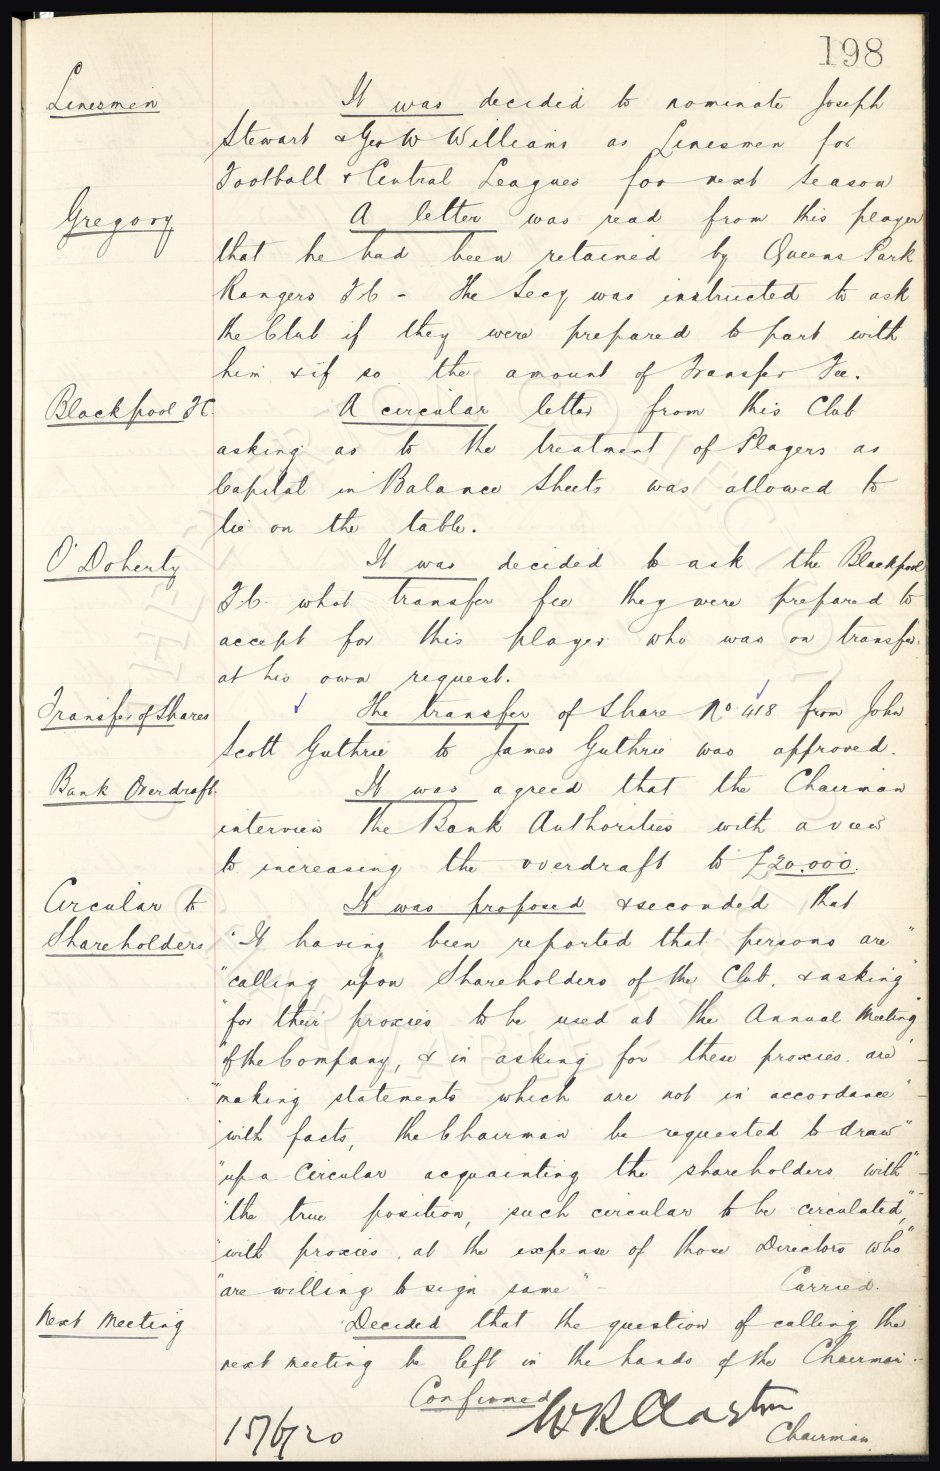 198
Linesmen
It was decided to nominate Joseph
Stewart & Geo W Williams as Linesmen for
Football & Central Leagues for next season
Gregory
A letter was read from this player
that he had been retained by Queens Park
Rangers F.C - The Secy was instructed to ask
the Club if they were prepared to part with
him & if so the amount of Transfer Fee.
Blackpool F.C.
A circular letter from this Club
asking as to the treatment of Players as
Capital in Balance Sheets was allowed to
lie on the table.
O'Doherty
It was decided to ask the Blackpool
F.C. what transfer fee they were prepared to
accept for this player who was on transfer
at his own request.
Transfer of Shares
The transfer of Share No. 418 from John
Scott Guthrie to James Guthrie was approved.
Bank Overdraft.
It was agreed that the Chairman
interview the Bank Authorities with a view
to increasing the overdraft to £20,000.
Circular to
Shareholders
It was proposed & seconded that
"It having been reported that persons are"
"calling upon Shareholders of the Club, & asking"
"for their proxies to be used at the Annual Meeting"
"of the Company, & in asking for these proxies are"
"making statements which are not in accordance"
"with facts, the Chairman be requested to draw"
"up a Circular acquainting the shareholders with"
"the true position, such circular to be circulated,"
"with proxies, at the expense of those Directors who"
"are willing to sign same" - Carried.
Next Meeting
Decided that the question of calling the
next meeting be left in the hands of the Chairman -
Confirmed
15/6/20
Chairman